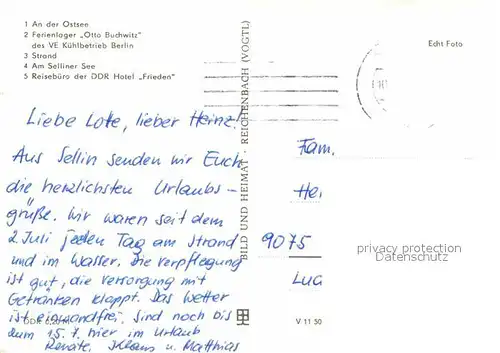 1 An der Ostsee
2 Ferienlager „Otto Buchwitz"
des VE Kühlbetrieb Berlin
3 Strand
4 Am Selliner See
5 Reisebüro der DDR Hotel „Frieden"
Echt Foto
Liebe Lote, lieber Heinz!
Aus Sellin senden wir Euch
die herzlichsten Urlaubs-
grüße. Wir waren seit dem
2. Juli jeden Tag am Strand
und im Wasser. Die Verpflegung
ist gut, die Versorgung mit
Getränken klappt. Das Wetter
ist einwandfrei. Sind noch bis
zum 15.7. hier im Urlaub
Renate, Klaus u. Matthias
BILD UND HEIMAT · REICHENBACH (VOGTL)
Fam.
Hei
9075
Lug
privacy protection
Datenschutz
V 11 50